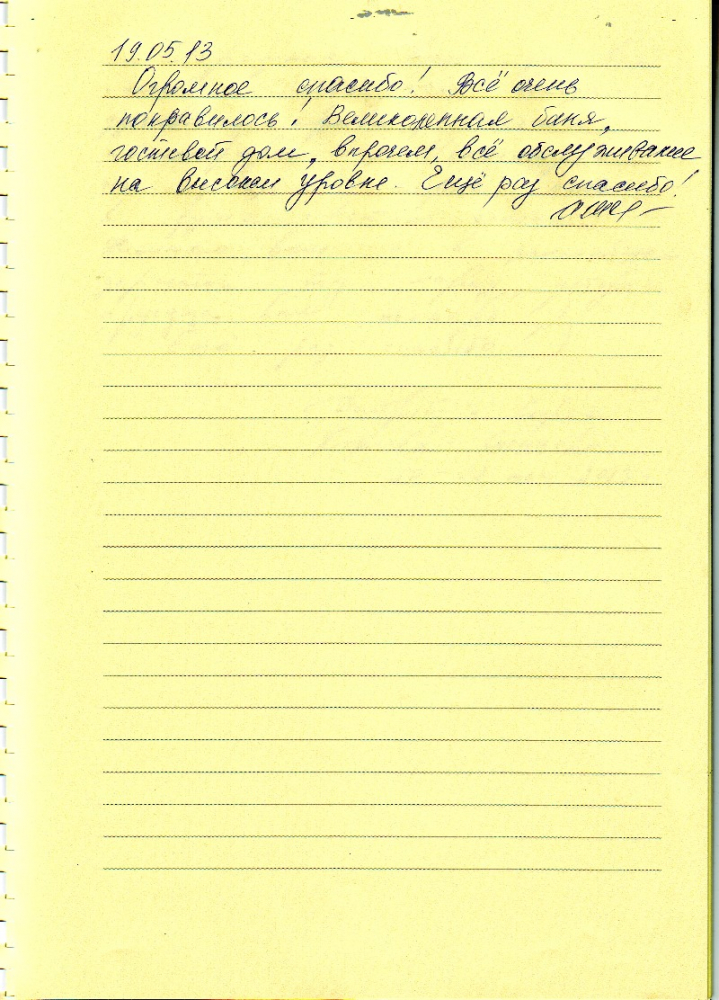 19.05.13
Огромное спасибо! Всё очень
понравилось! Великолепная баня,
гостевой дом, впрочем, всё обслуживание
на высоком уровне. Ещё раз спасибо!